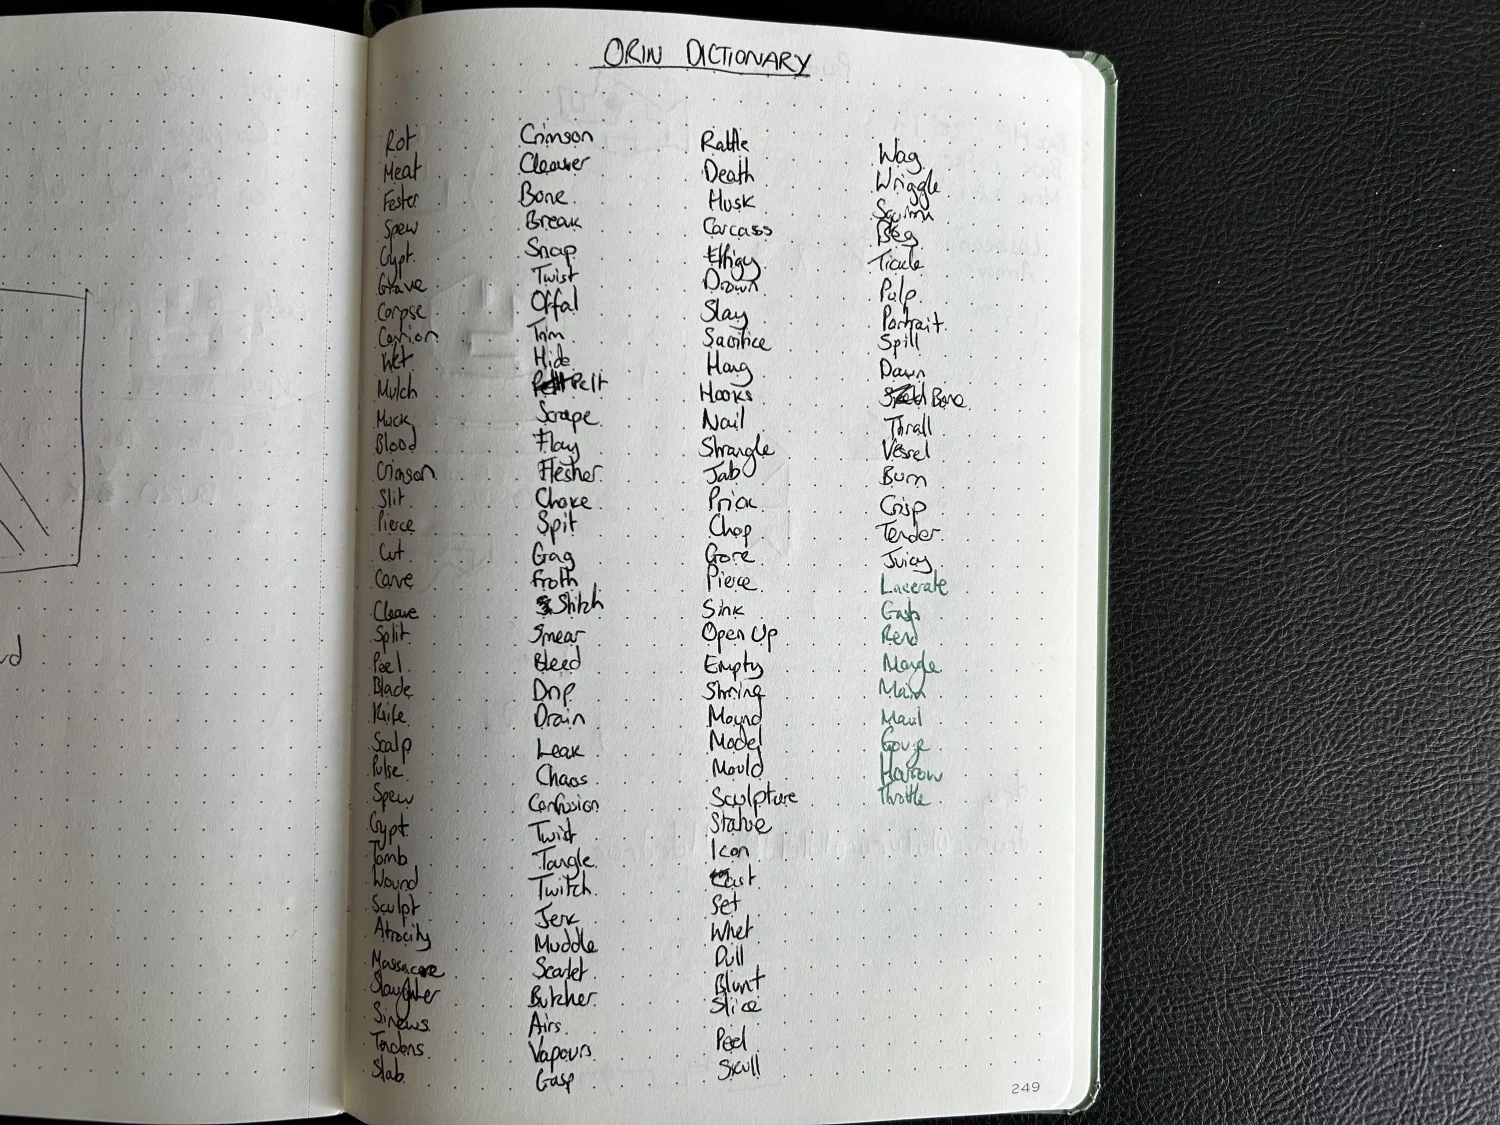 ORIN DICTIONARY
Rot
Meat
Fester
Spew
Crypt
Grave
Corpse
Carrion
Wet
Mulch
Muck
Blood
Crimson
Slit
Pierce
Cut
Carve
Cleave
Split
Peel
Blade
Knife
Scalp
Pulse
Spew
Crypt
Tomb
Wound
Sculpt
Atrocity
Massacre
Slaughter
Sinews
Tendons
Slab
Crimson
Cleaver
Bone
Break
Snap
Twist
Offal
Trim
Hide
Pelt
Scrape
Flay
Flesher
Choke
Spit
Gag
Froth
Stitch
Smear
Bleed
Drip
Drain
Leak
Chaos
Confusion
Twist
Tangle
Twitch
Jerk
Muddle
Scarlet
Butcher
Airs
Vapours
Gasp
Rattle
Death
Husk
Carcass
Effigy
Drown
Slay
Sacrifice
Hang
Hooks
Nail
Strangle
Jab
Prick
Chop
Gore
Pierce
Sink
Open Up
Empty
Shrine
Mound
Model
Mould
Sculpture
Statue
Icon
Cast
Set
Whet
Dull
Blunt
Slice
Peel
Skull
Wag
Wriggle
Squirm
Beg
Tickle
Pulp
Portrait
Spill
Dawn
Bone
Thrall
Vessel
Burn
Crisp
Tender
Juicy
Lacerate
Gash
Rend
Mangle
Maim
Maul
Gouge
Harrow
Throttle
249